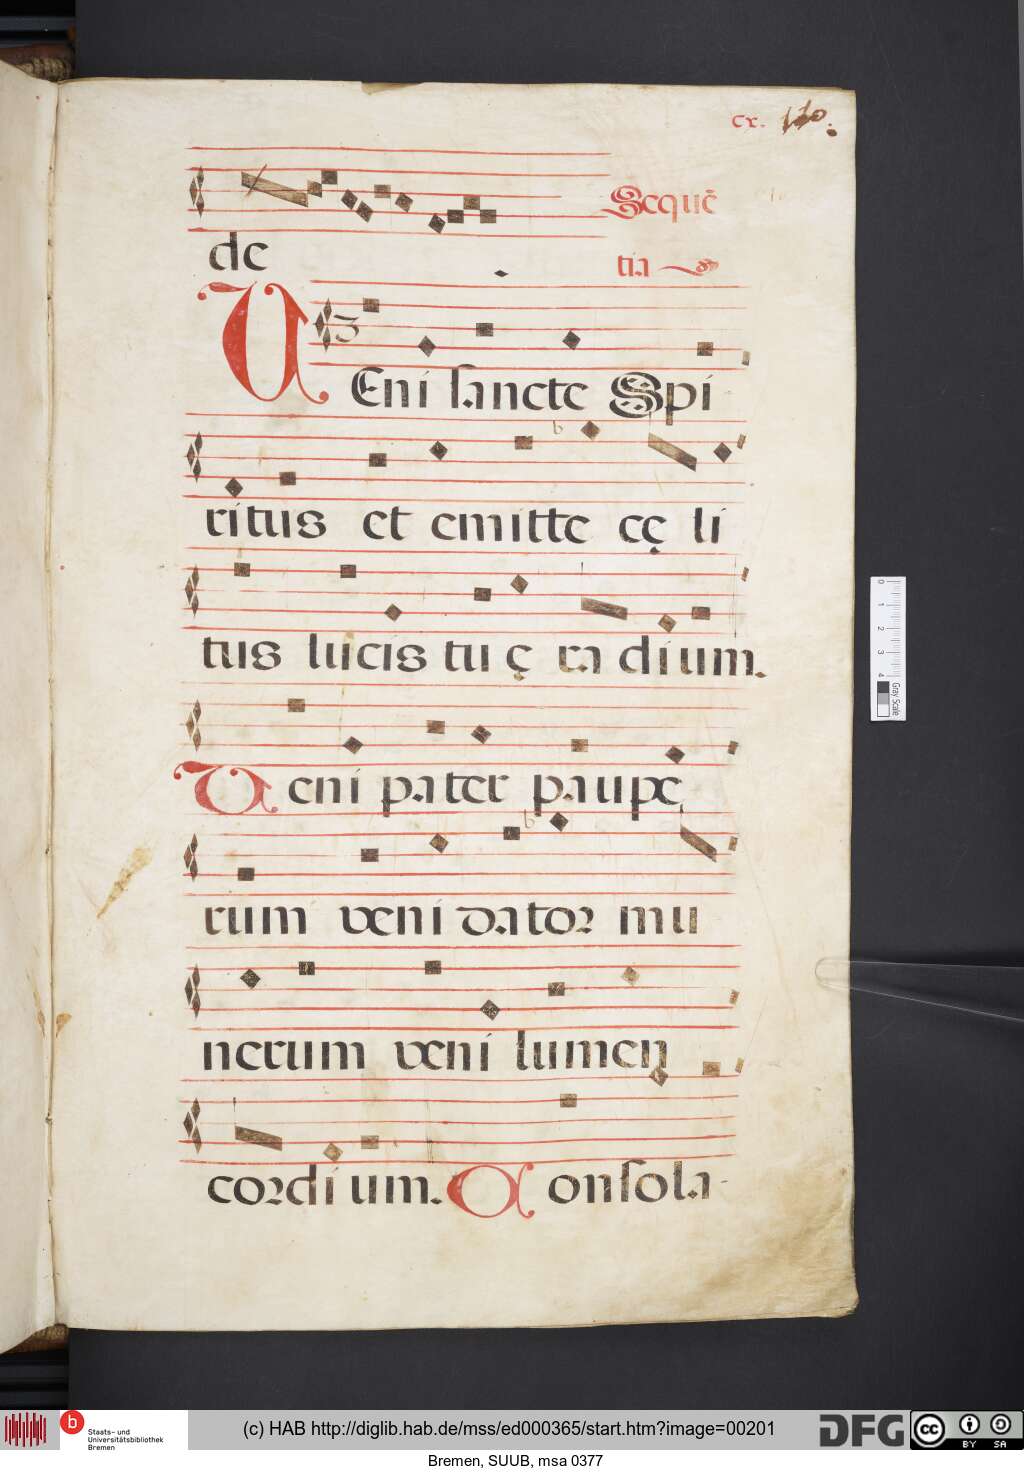 cx. 110.
Sequē
de
tia
VEni sancte Spi
ritus et emitte cę li
tus lucis tu ę ra dium.
Veni pater paupe
rum veni dator mu
nerum veni lumen
cordium. Consola-
0 1 2 3 4
Gray Scale
b
Staats- und
Universitätsbibliothek
Bremen
(c) HAB http://diglib.hab.de/mss/ed000365/start.htm?image=00201
DFG
cc BY SA
Bremen, SUUB, msa 0377